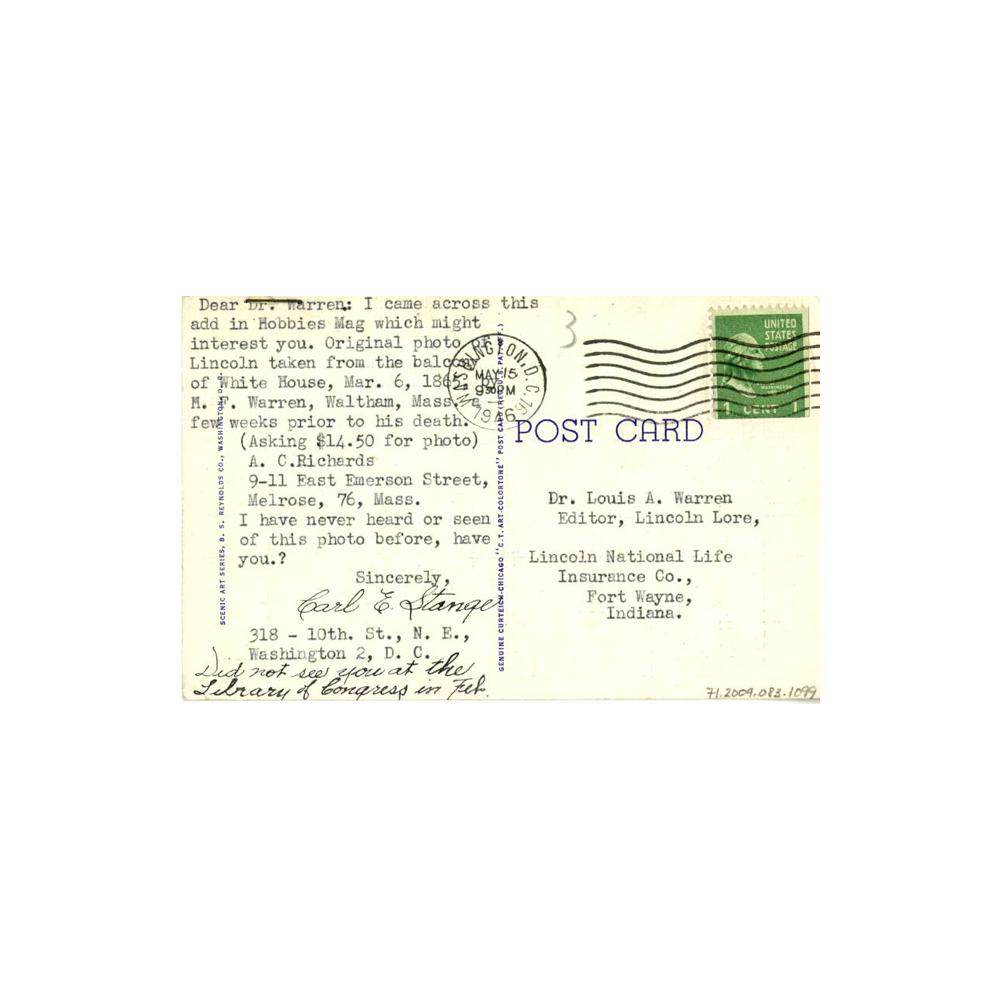 Dear Dr. Warren: I came across this
add in Hobbies Mag which might
interest you. Original photo
Lincoln taken from the balcony
of White House, Mar. 6, 1865, by
M. F. Warren, Waltham, Mass. a
few weeks prior to his death.
(Asking $14.50 for photo)
A. C.Richards
9-11 East Emerson Street,
Melrose, 76, Mass.
I have never heard or seen
of this photo before, have
you.?
Sincerely,
Carl E. Stange
318 - 10th. St., N. E.,
Washington 2, D. C.
Did not see you at the
Library of Congress in Feb.
SCENIC ART SERIES, B. S. REYNOLDS CO., WASHINGTON, D. C.
GENUINE CURTEICH-CHICAGO "C.T. ART-COLORTONE" POST CARD (REG. U. S. PAT. OFF.)
3
WASHINGTON, D.C.
MAY 15
PM
UNITED
STATES
POSTAGE
WASHINGTON
1 CENT 1
POST CARD
Dr. Louis A. Warren
Editor, Lincoln Lore,
Lincoln National Life
Insurance Co.,
Fort Wayne,
Indiana.
71.2009.083.1099